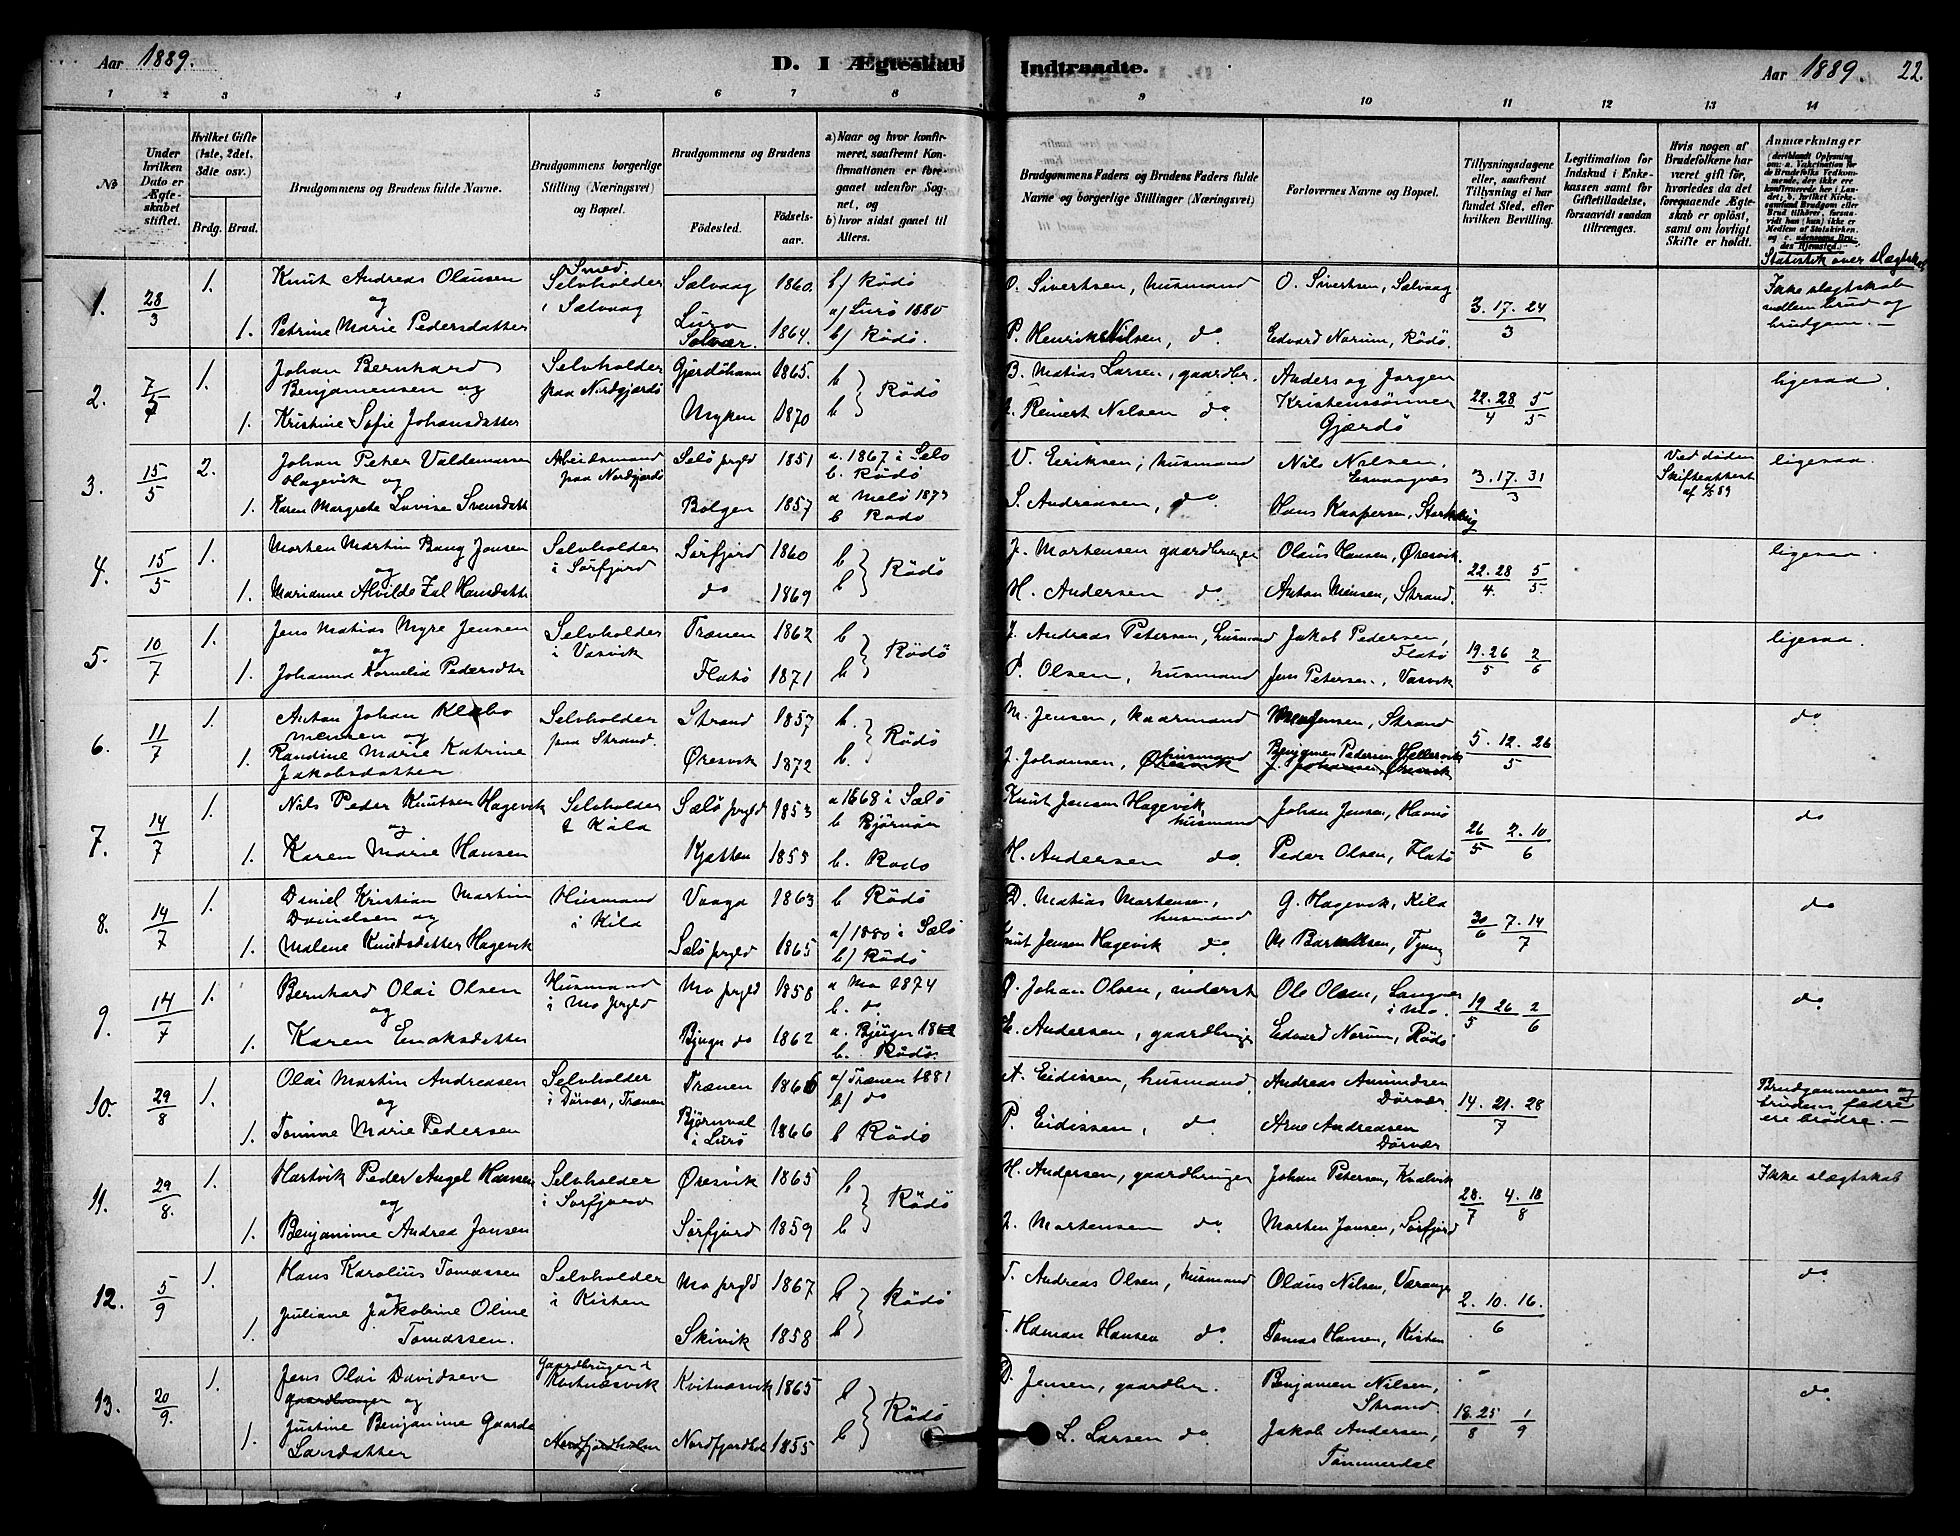 Aar 1889.
D. I Ægteskab Indtraadte.
Aar 1889. 22.
1 2 3 4 5 6 7 8 9 10 11 12 13 14
No
Under hvilken Dato er Ægteskabet stiftet.
Hvilket Gifte (1ste, 2det, 3die osv.)
Brdg. Brud.
Brudgommens og Brudens fulde Navne.
Brudgommens borgerlige Stilling (Næringsvei) og Bopæl.
Brudgommens og Brudens
Fødested. Fødselsaar.
a) Naar og hvor konfirmeret, saafremt Konfirmationen er foregaaet udenfor Sognet, og
b) hvor sidst gaaet til Alters.
Brudgommens Faders og Brudens Faders fulde Navne og borgerlige Stillinger (Næringsvei)
Forlovernes Navne og Bopæl.
Tillysningsdagene eller, saafremt Tillysning ei har fundet Sted, efter hvilken Bevilling.
Legitimation for Indskud i Enkekassen samt for Giftetilladelse, forsaavidt saadan tiltrænges.
Hvis nogen af Brudefolkene har været gift før, hvorledes da det foregaaende Ægteskab er opløst, samt om lovligt Skifte er holdt.
Anmærkninger
Statistik over slægtskab
1. 28/3 1. Knut Andreas Olausen Smed. Selvholder Selvaag 1860. b/ Rödö O. Sivertsen, husmand O. Sivertsen, Selvaag 3. 17. 24/3 Ikke slægtskab
og i Selvaag mellem brud og
1. Petrine Marie Pedersdatter Lurø Solvær. 1864. a/ Lurö 1880 b/ Rödö. P. Henrik Nilsen, do Edvard Norum, Rödö. brudgom. —
2. 7/5 1. Johan Bernhard Selvholder Gjerdöhavn 1865. b B. Matias Larsen, gaardbr. Anders og Jørgen 22. 28/4 5/5 ligesaa.
Benjamensen og paa Nordgjerdö Rödö Kristenssönner
1. Kristine Sofie Johansdatter Myken 1870 b J. Reinert Nilsen do Gjærdö
3. 15/5 2. Johan Peter Valdemarsen Arbeidsmand Selö prgld 1851 a. 1867 i Selö V. Eriksen, husmand Nils Nilsen, 3. 17. 31/3 Ved døden ligesaa.
Hagevik og paa Nordgjerdö b. Rödö Skifteattest
1. Karen Margrete Lovise Svensdatt Bolgen 1857 a Melö 1873 b Rödö S. Andreasen, do. Hans Kaspersen,
4. 15/5 1. Morten Martin Bang Jonsen Selvholder Sörfjord 1860 b J. Mortensen gaardbruger Olaus Hansen, Øresvik 22. 28/4. 5/5. ligesaa.
og i Sörfjord Rödö
1. Marianne Alvilde Hansdatt do 1869 b H. Andersen do. Anton Mensen, Strand.
5. 10/7 1. Jens Matias Myre Jensen Selvholder Trænen 1862 b J. Andreas Petersen, husmand Jakob Pedersen, 19. 26/5 2/6 ligesaa.
og i Vasvik Rödö Flatö
1. Johanna Kornelia Pedersdtr Flatö 1871 b P. Olsen, husmand Jens Petersen, Vasvik
6. 11/7 1. Anton Johan Klæbo Selvholder Strand 1857 b. M. Jensen, kaarmand M. Jensen, Strand 5. 12. 26/5 do.
Mensen og paa Strand. Rödö
1. Randine Marie Katrine Øresvik 1872 b. J. Johansen, husmand Øresvik Benjamen Pedersen Hellervik
Jakobsdatter J. Johansen, Øresvik
7. 14/7 1. Nils Peder Knutsen Hagevik Selvholder Sælö prgld 1853 a 1868 i Sælö Knut Jensen Hagevik, Johan Jensen, Havnö 26/5 2. 10/6 do
og i Kila b Björnön husmand
1. Karen Marie Hansen 1855 b. Rödö H. Andersen do. Peder Olsen, Flatö
8. 14/7 1. Daniel Kristian Martin Husmand Vaaga 1863 b Rödö D. Matias Mortensen, G. Hagevik, Kila 30/6 7. 14/7 do
Danielsen og i Kila husmand
1. Malene Knudsdatter Hagevik Selö prgld 1865 a/ 1880 i Sælö b/ Rödö Knut Jensen Hagevik do.
9. 14/7 1. Bernhard Olai Olsen Husmand Mo prgld 1858 a Mo 1874 b. do O. Johan Olsen, inderst Ole Olsen, Langnes 19/5 26 2/6 do
og i Mo prgld i Mo.
1. Karen Enoksdatter Bjugn do 1862 a. Bjugn b. Rödö. E. Andersen, gaardbruger Edvard Norum, Rödö
10. 29/8 1. Olai Martin Andreasen Selvholder Trænen 1866 a/ Trænen 1881 b/ do A. Eidissen, husmand Andreas Amundsen 14. 21. 28/7 Brudgommens og
og i Dörvær, Trænen Dörvær brudens fædre
1. Tomine Marie Pedersen Björnval i Lurö 1866 b Rödö P. Eidissen, do. Arne Andreasen ere brödre. —
Dörvær
11. 29/8. 1. Hartvik Peder Angel Hansen Selvholder Øresvik 1865 b H. Andersen, gaardbruger Johan Petersen, Kvalvik 28./7 4. 18/8 Ikke slægtskab
og i Sörfjord Rödö
1. Benjamine Andrea Jonsen Sörfjord 1859 b J. Mortensen do. Morten Jonsen, Sörfjord
12. 5/9 1. Hans Karolius Tomassen Selvholder Mo prgld 1867 b T. Andreas Olsen, husmand Olaus Nilsen, Værange 2. 10. 16./6 do
og i Kisten Rödö
1. Juliane Jakobine Oline Skivik 1858 b T. Haman Hansen do. Tomas Hansen, Kisten
Tomassen.
13. 20/9. 1. Jens Olai Davidsen Gaardbruger i Kvitnæsvik Kvitnæsvik 1865 b D. Jensen, gaardbr. Benjamen Nilsen, 18. 25/8 1/9 do
gaardbruger og Rödö Strand.
1. Justine Benjamine Gaarde Nordfjordholm Nordfjordhol 1855 b L. Larsen do. Jakob Andersen,
Larsdatter Tömmerdal